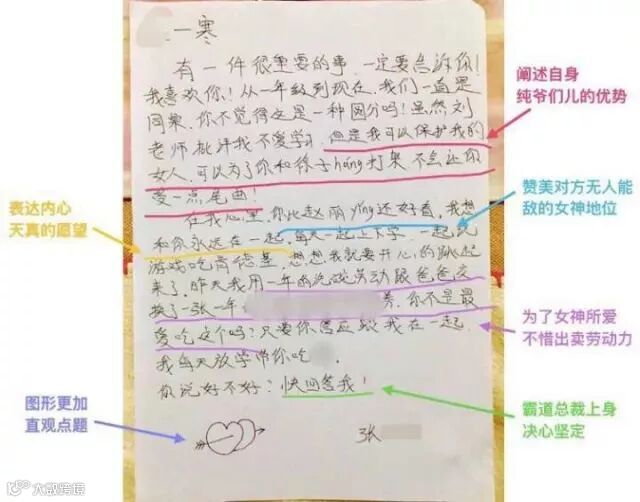 一寒
有一件很重要的事,一定要告诉你!
我喜欢你!从一年级到现在,我们一直是
同桌,你不觉得这是一种园分吗!虽然刘
老师批评我不爱学习,但是我可以保护我的
女人,可以为了你和徐子háng打架,不会让你
受一点尾曲!
在我心里,你比赵丽yǐng还好看,我想
和你永远在一起,每天一起上下学,一起玩
游戏吃肯德基,想想我就要开心的跳起
来了,昨天我用一年的洗碗劳动跟爸爸交
换了一张一年
券,你不是最
爱吃这个吗?只要你答应跟我在一起,
我每天放学带你吃
你说好不好?快回答我!
张
阐述自身
纯爷们儿的优势
赞美对方无人能
敌的女神地位
表达内心
天真的愿望
为了女神所爱
不惜出卖劳动力
图形更加
直观点题
霸道总裁上身
决心坚定
大数跨境